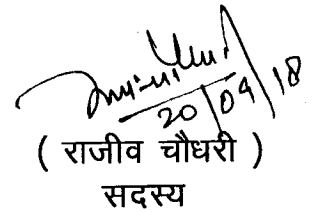 20/04/18
( राजीव चौधरी )
सदस्य